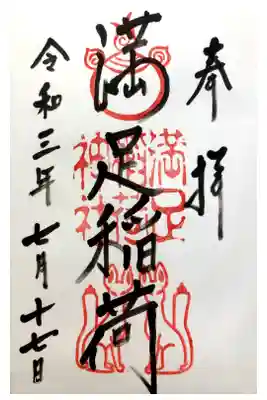 奉拝
満足稲荷
満足稲荷神社
令和三年七月十七日